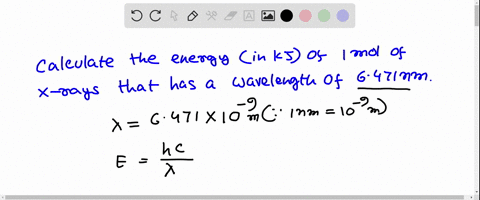 Calculate the energy (in kJ) of 1 mol of
x-rays that has a wavelength of 6.471nm.
λ = 6.471 × 10⁻⁹ m (∵ 1nm = 10⁻⁹ m)
E = hc/λ